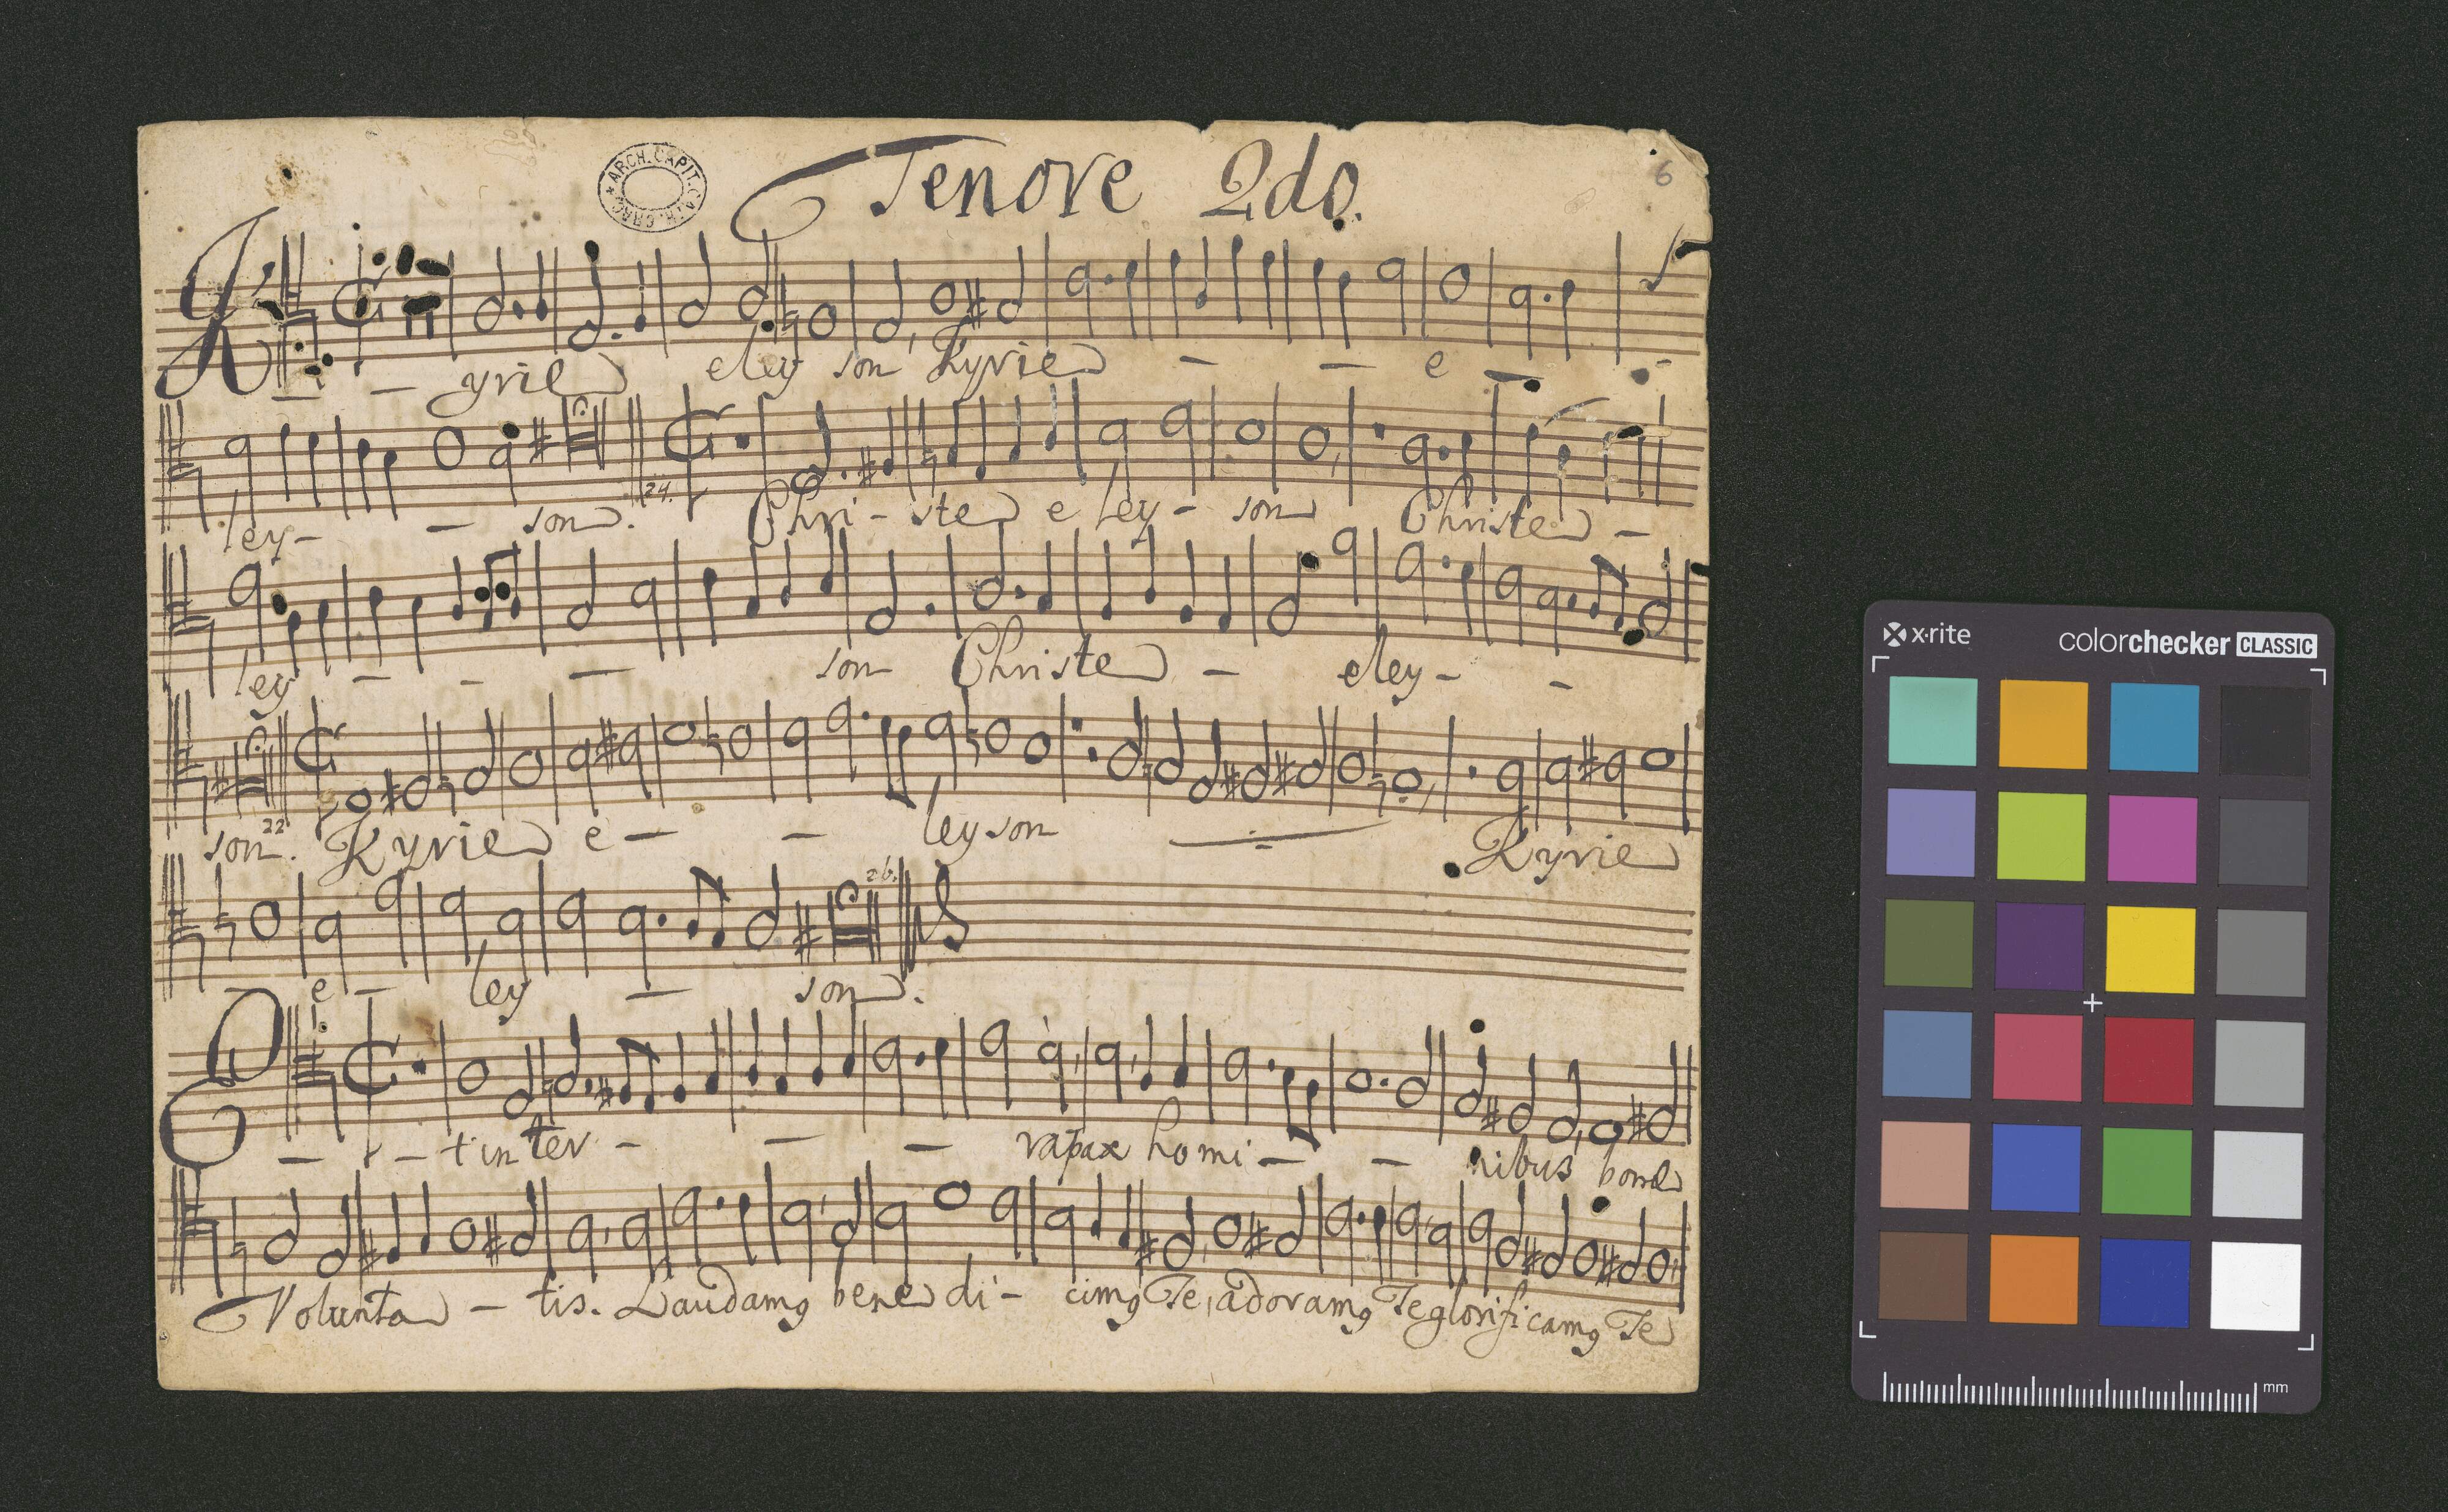 Tenore 2do.
6
ARCH. CAPIT. CATH. CRAC
Kyrie eley son Kyrie - - e - -
ley - - son. 24. Chri - ste e ley - son Christe -
ley - - - son Christe - eley - -
son. 22 Kyrie e - - leyson Kyrie
26.
- e - ley - son.
Et in ter - - - ra pax homi - - nibus bone
Volunta - tis. Laudamꝰ bene di - cimꝰ Te, adoramꝰ Te glorificamꝰ Te
x·rite
colorchecker CLASSIC
mm